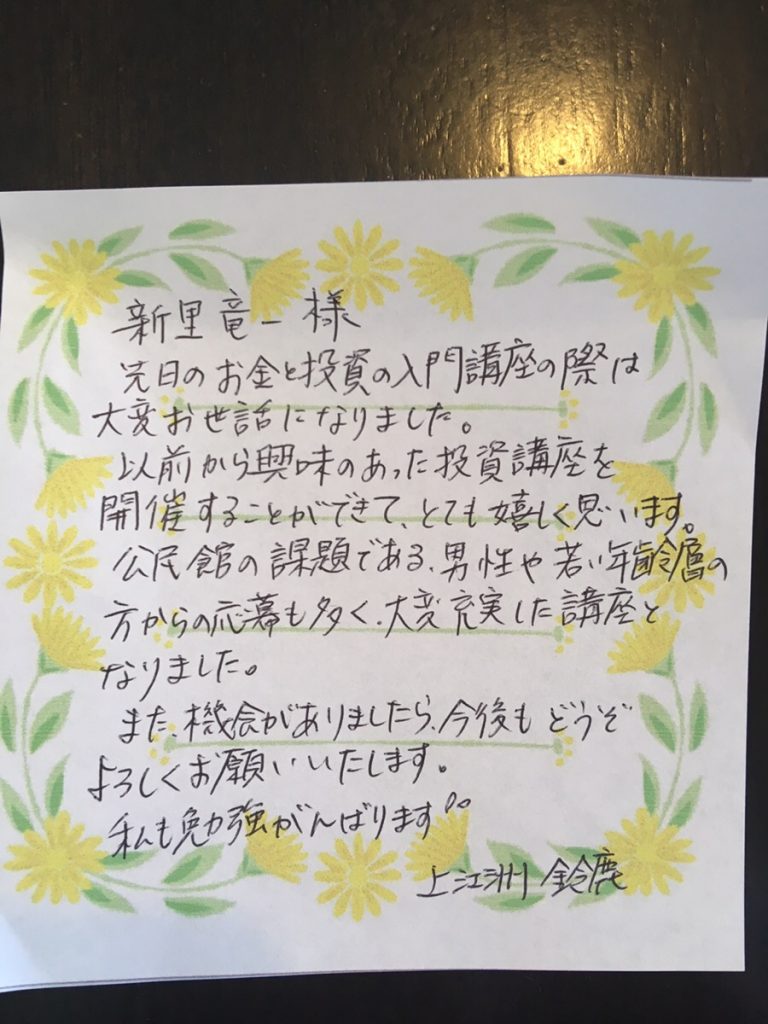 新里竜一様
先日のお金と投資の入門講座の際は
大変お世話になりました。
以前から興味のあった投資講座を
開催することができて、とても嬉しく思います。
公民館の課題である、男性や若い年齢層の
方からの応募も多く、大変充実した講座と
なりました。
また、機会がありましたら、今後もどうぞ
よろしくお願いいたします。
私も勉強がんばります!!
上江洲 鈴鹿